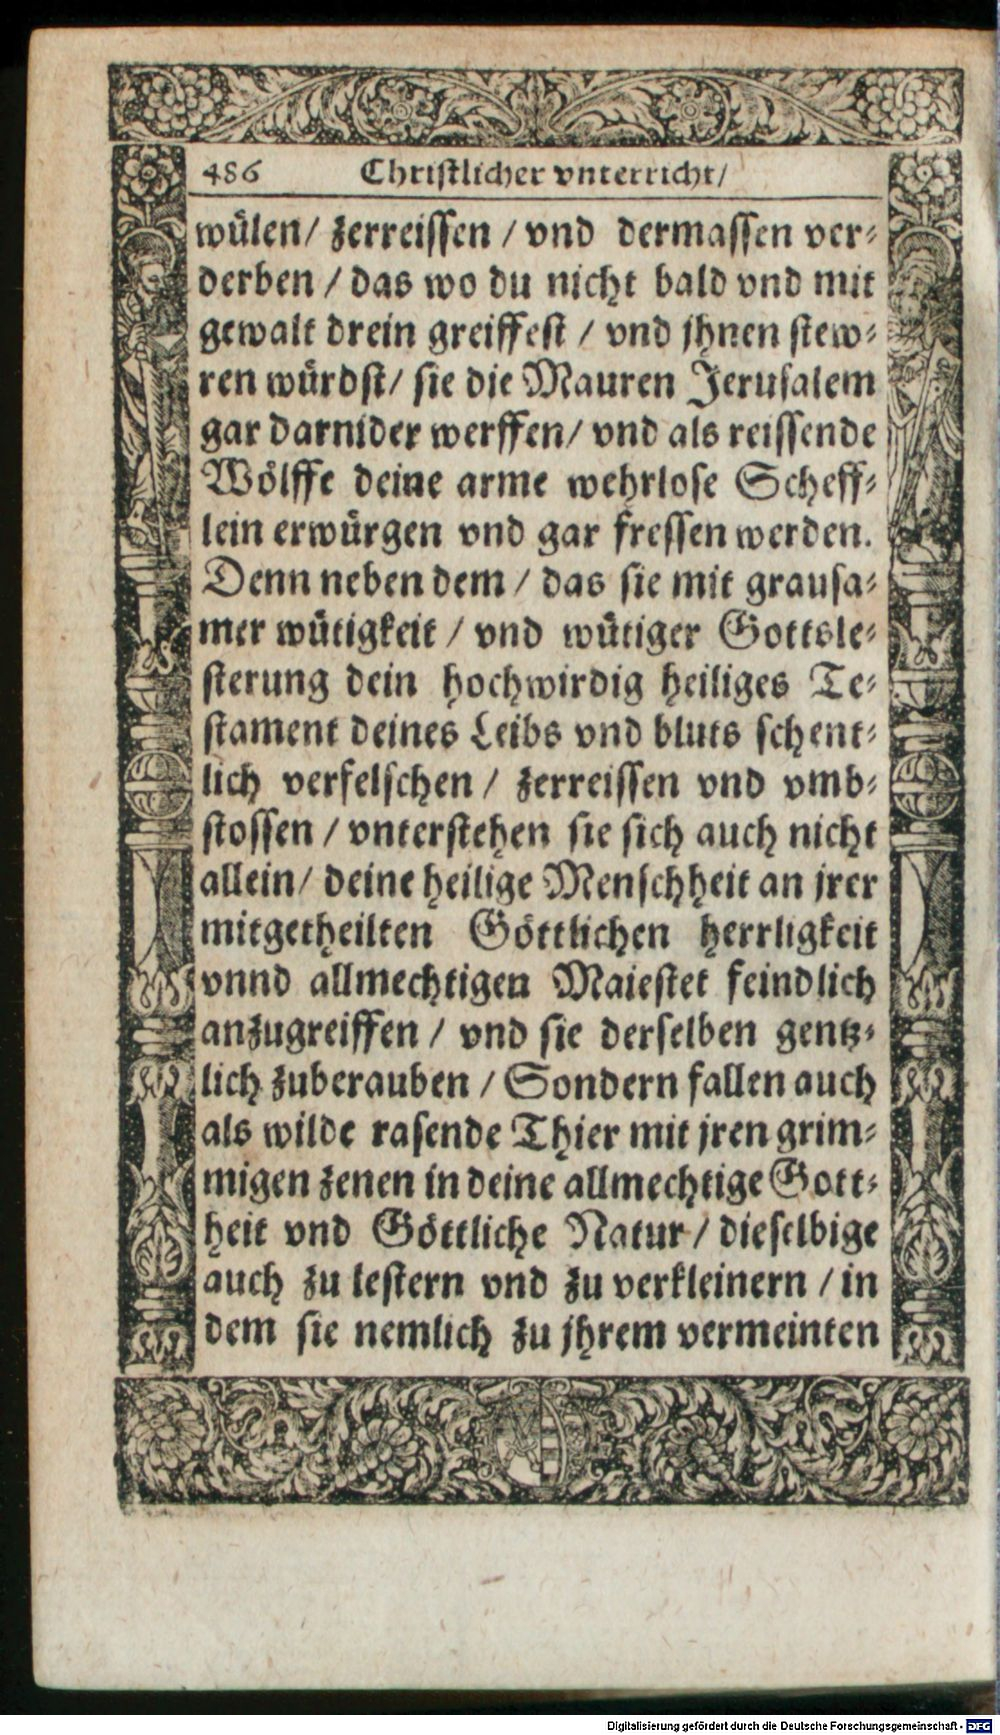 486 Christlicher vnterricht/
wülen/ zerreissen / vnd dermassen ver⸗
derben / das wo du nicht bald vnd mit
gewalt drein greiffest / vnd jhnen stew⸗
ren würdst/ sie die Mauren Jerusalem
gar darnider werffen/ vnd als reissende
Wölffe deine arme wehrlose Scheff⸗
lein erwürgen vnd gar fressen werden.
Denn neben dem / das sie mit grausa⸗
mer wütigkeit / vnd wütiger Gottsle⸗
sterung dein hochwirdig heiliges Te⸗
stament deines Leibs vnd bluts schent⸗
lich verfelschen / zerreissen vnd vmb⸗
stossen / vnterstehen sie sich auch nicht
allein/ deine heilige Menschheit an jrer
mitgetheilten Göttlichen herrligkeit
vnnd allmechtigen Maiestet feindlich
anzugreiffen / vnd sie derselben gentz⸗
lich zuberauben / Sondern fallen auch
als wilde rasende Thier mit jren grim⸗
migen zenen in deine allmechtige Gott⸗
heit vnd Göttliche Natur / dieselbige
auch zu lestern vnd zu verkleinern / in
dem sie nemlich zu jhrem vermeinten
Digitalisierung gefördert durch die Deutsche Forschungsgemeinschaft - DFG